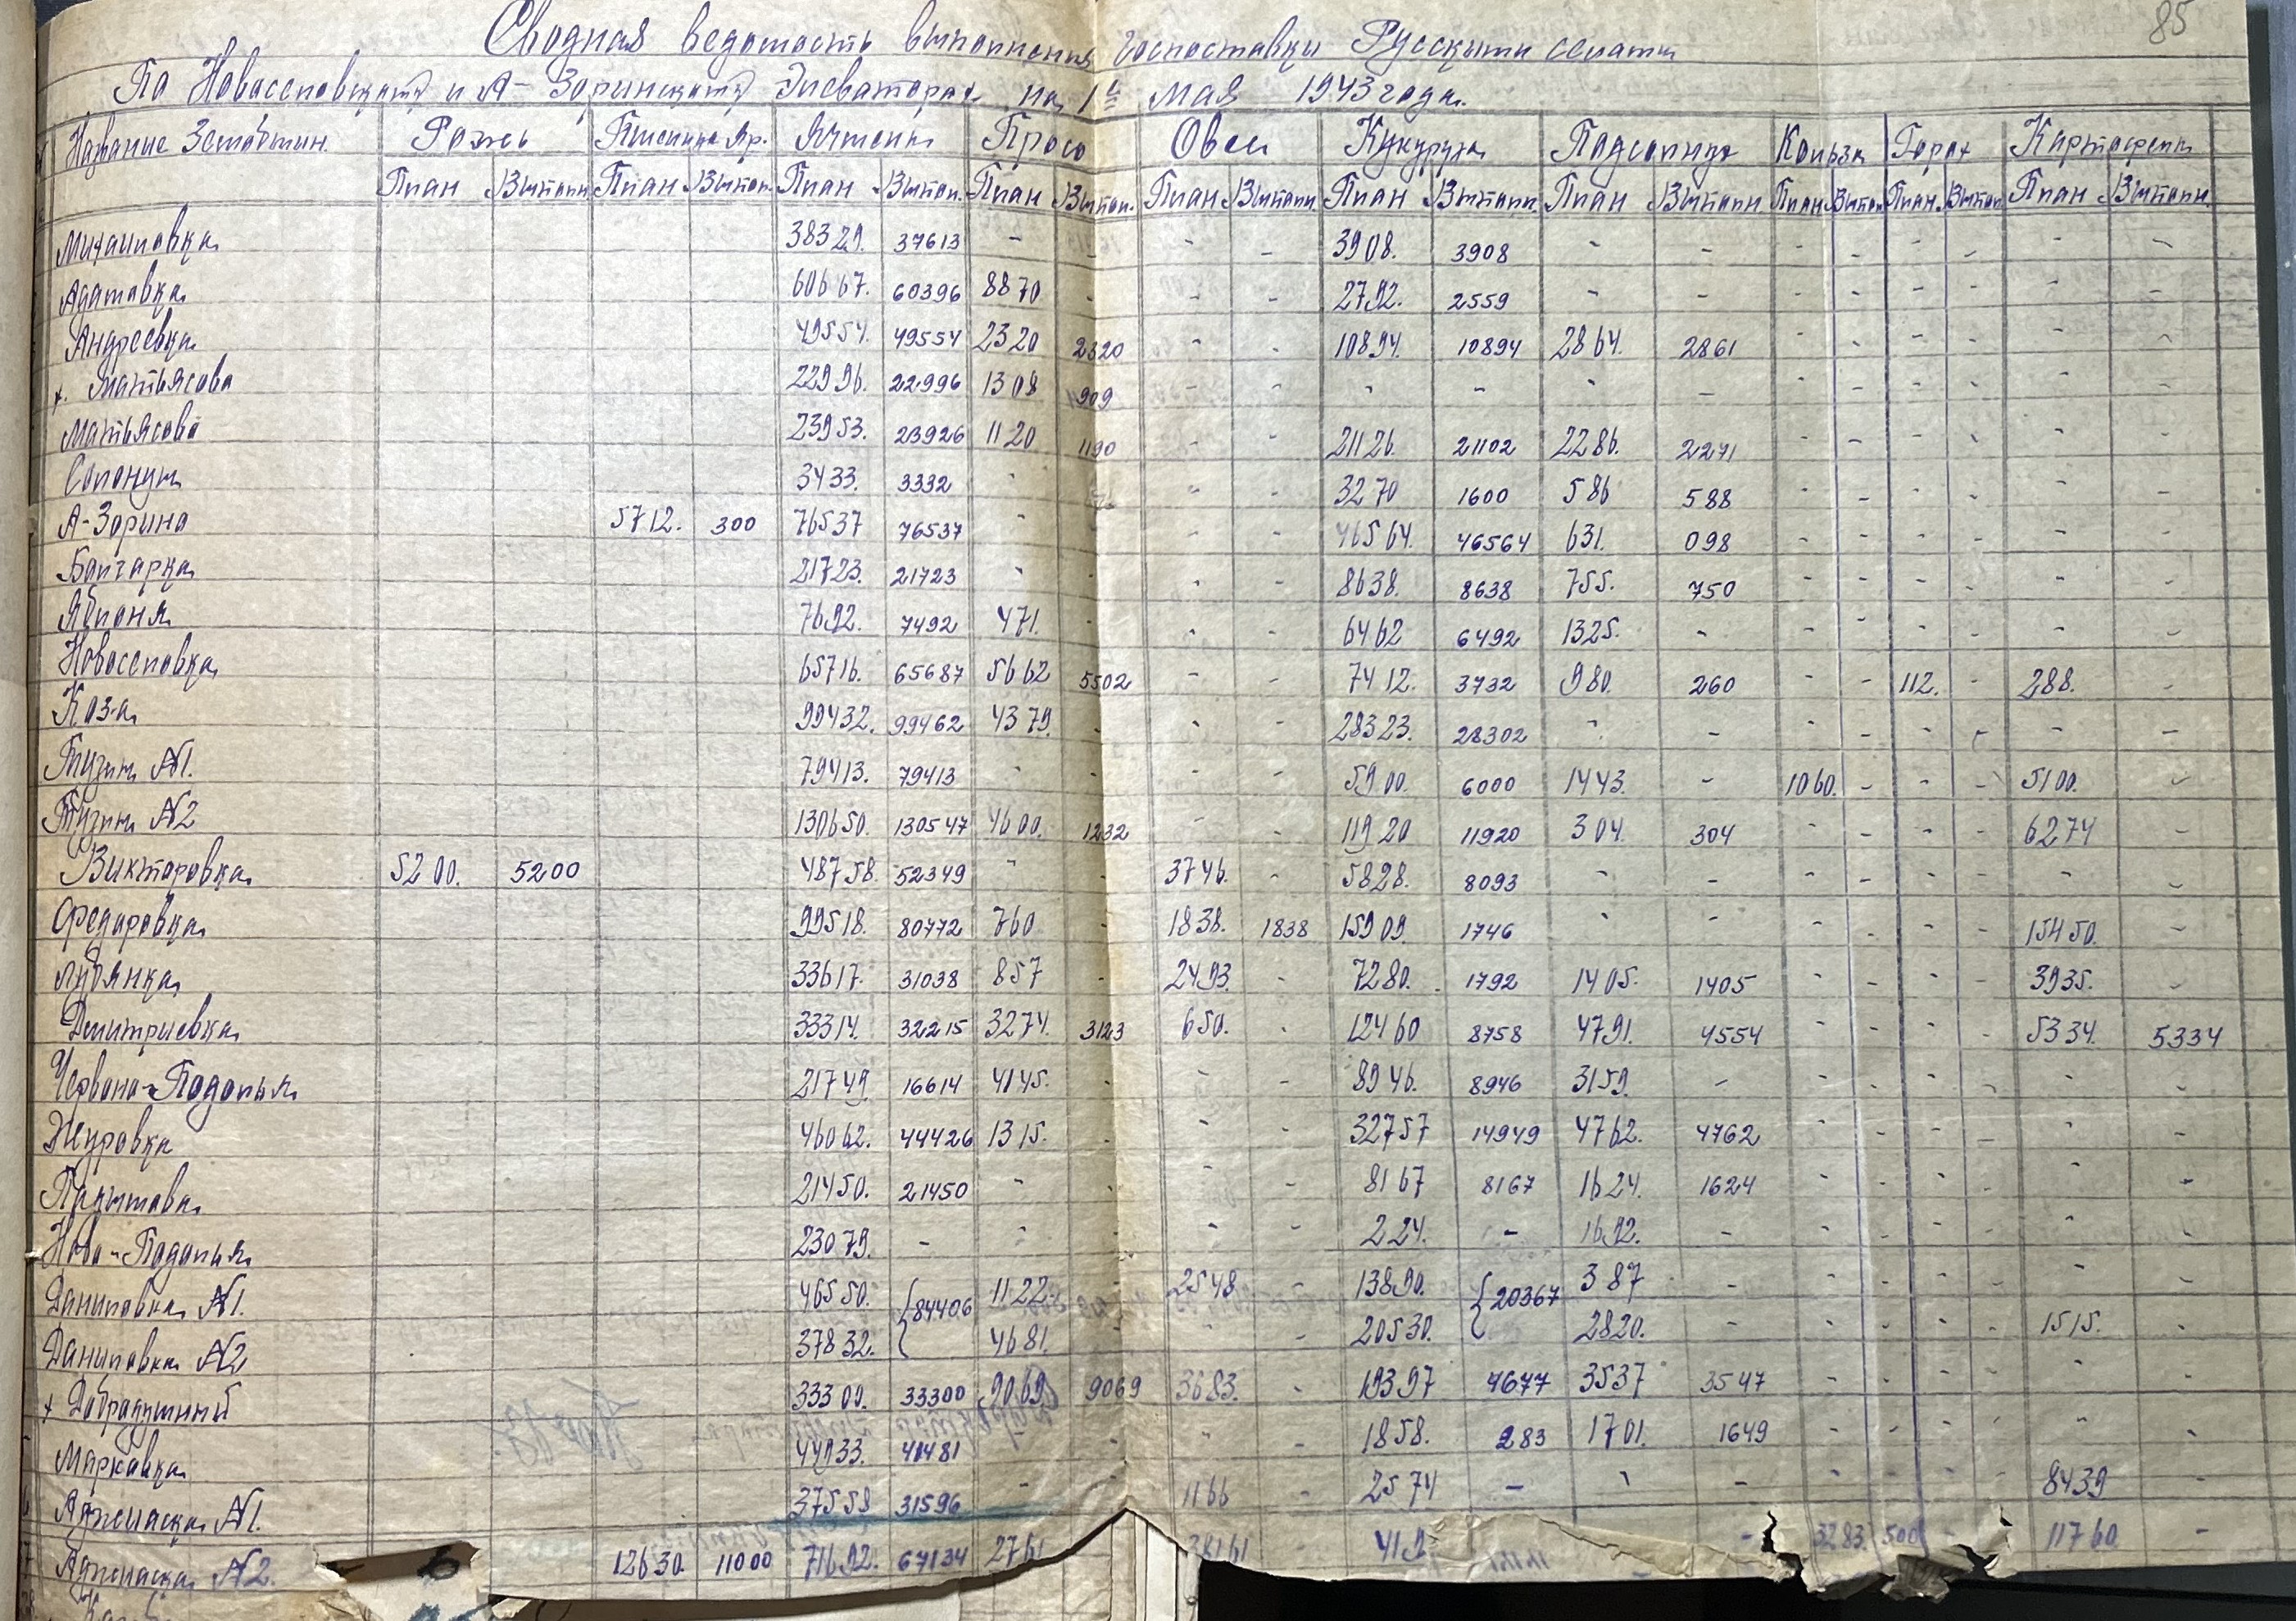 85
Сводная ведомость выполнения госпоставки Русскими селами
По Новоселовскому и А-Зоринскому Элеваторах на 1е мая 1943 года.
Название Рожь Пшеница Яр. Ячмень Просо Овес Кукуруза Подсолнух Кользы Горох Картофель
План Выполн. План Выполн. План Выпол. План Выпол. План Выполн. План Выполн. План Выполн. План Выпол. План Выпол. План Выполн.
Михаиловка 38329. 37613 - - - - 3908. 3908 - - - - - - - -
Адамовка 60667. 60396 8870 - - - 2792. 2559 - - - - - - - -
Андреевка 49554. 49554 2320 2320 - - 10894. 10894 2864. 2861 - - - - - -
х. Матьясова 22996. 22996 1308 909 - - - - - - - - - - - -
Матьясово 23953. 23926 1120 1190 - - 21126. 21102 2286. 2271 - - - - - -
3433. 3332 - - - 3270 1600 586 588 - - - - - -
А-Зорино 5712. 300 76537 76537 - - - 46564. 46564 631. 098 - - - - - -
Болгарка 21723. 21723 - - - - 8638. 8638 755. 750 - - - - - -
Яблоня 7692. 7492 471. - - 6462 6492 1325. - - - - - - -
Новоселовка 65716. 65687 5662 5502 - - 7412. 3732 980. 260 - - 112. - 288. -
Коза 99432. 99462 4379. - - - 28323. 28302 - - - - - - - -
Тузлы №1. 79413. 79413 - - - - 5900. 6000 1443. - 1060. - - - 5100. -
Тузлы №2 130650. 130547 4600. 1232 - - 11920 11920 304. 304 - - - - 6274 -
Викторовка 5200. 5200 48758. 52349 - - 3746. - 5828. 8093 - - - - - - - -
Федоровка 99518. 80772 760 - 1838. 1838 15909. 1746 - - - - - - 15450. -
Лубянка 33617. 31038 857 - 2493. - 7280. 1792 1405. 1405 - - - - 3935. -
Дмитриевка 33314. 32215 3274. 3123 650. - 12460 8758 4791. 4554 - - - - 5334. 5334
Червоно-Подолья 21749. 16614 4145. - - - 8946. 8946 3159. - - - - - - -
Журовка 46062. 44426 1315. - - - 32757 14949 4762. 4762 - - - - - -
21450. 21450 - - - 8167 8167 1624. 1624 - - - - - -
Ново-Подолья 23079. - - - - 224. - 1692. - - - - - - -
Даниловка №1. 46550. {84406 1122. - 2548 - 13890. {20367 387 - - - - - - -
Даниловка №2 37832. 4681. - - - 20530. 2820. - - - - - 1515. -
х Добродушный 33300. 33300 9069 9069 3683. - 19397 4677 3537 3547 - - - - - -
Марковка 44933. 41481 - - - - 1858. 283 1701. 1649 - - - - - -
Аджиаска №1. 37558 31596 - - 1166 - 2574 - - - - - - - 8439 -
Аджиаска №2. 12630. 11000 71692. 67134 2761 - 3283. 500 - 11760. -